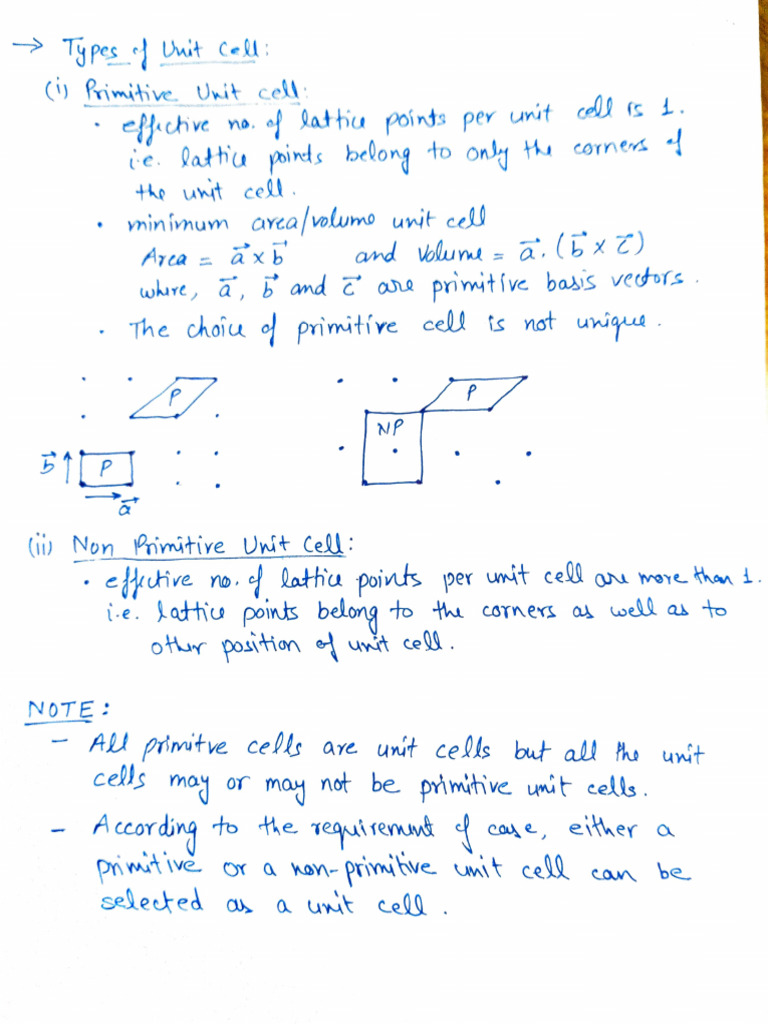 → Types of Unit Cell:
(i) Primitive Unit cell:
• effective no. of lattice points per unit cell is 1.
i.e. lattice points belong to only the corners of
the unit cell.
• minimum area/volume unit cell
Area = a⃗ × b⃗ and Volume = a⃗ . (b⃗ × c⃗)
where, a⃗, b⃗ and c⃗ are primitive basis vectors.
• The choice of primitive cell is not unique.
P P
NP
b⃗ P
a⃗
(ii) Non Primitive Unit Cell:
• effective no. of lattice points per unit cell are more than 1.
i.e. lattice points belong to the corners as well as to
other position of unit cell.
NOTE:
– All primitve cells are unit cells but all the unit
cells may or may not be primitive unit cells.
– According to the requirement of case, either a
primitive or a non-primitive unit cell can be
selected as a unit cell.